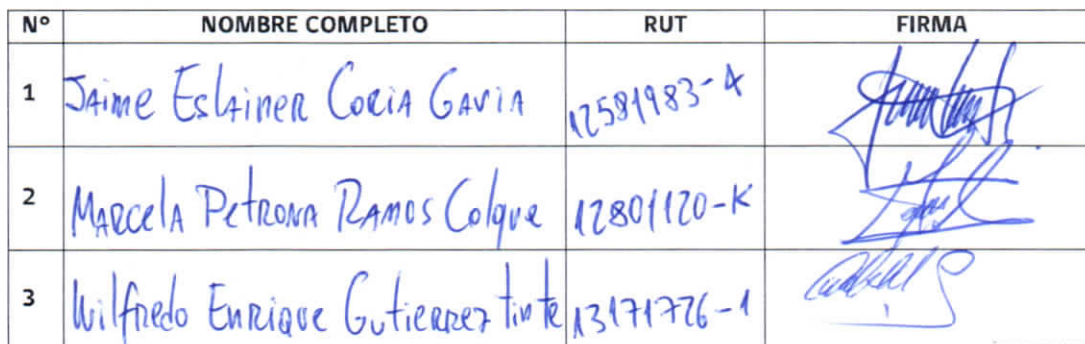 N° NOMBRE COMPLETO RUT FIRMA
1 Jaime Eslainer Coria Gavia 12581983-4
2 Marcela Petrona Ramos Colque 12801120-K
3 Wilfredo Enrique Gutierrez tinte 13171726-1